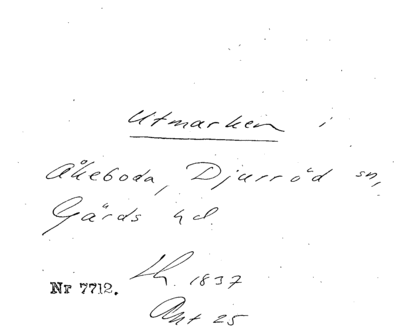 Utmarken i
Åkeboda, Djurröd sn,
Gärds hd.
Lh. 1837
Nr 7712.
Akt 25